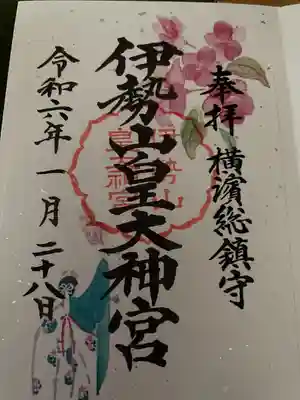 奉拝 横濱総鎮守
伊勢山皇大神宮
令和六年一月二十八日
伊勢山
皇大神宮